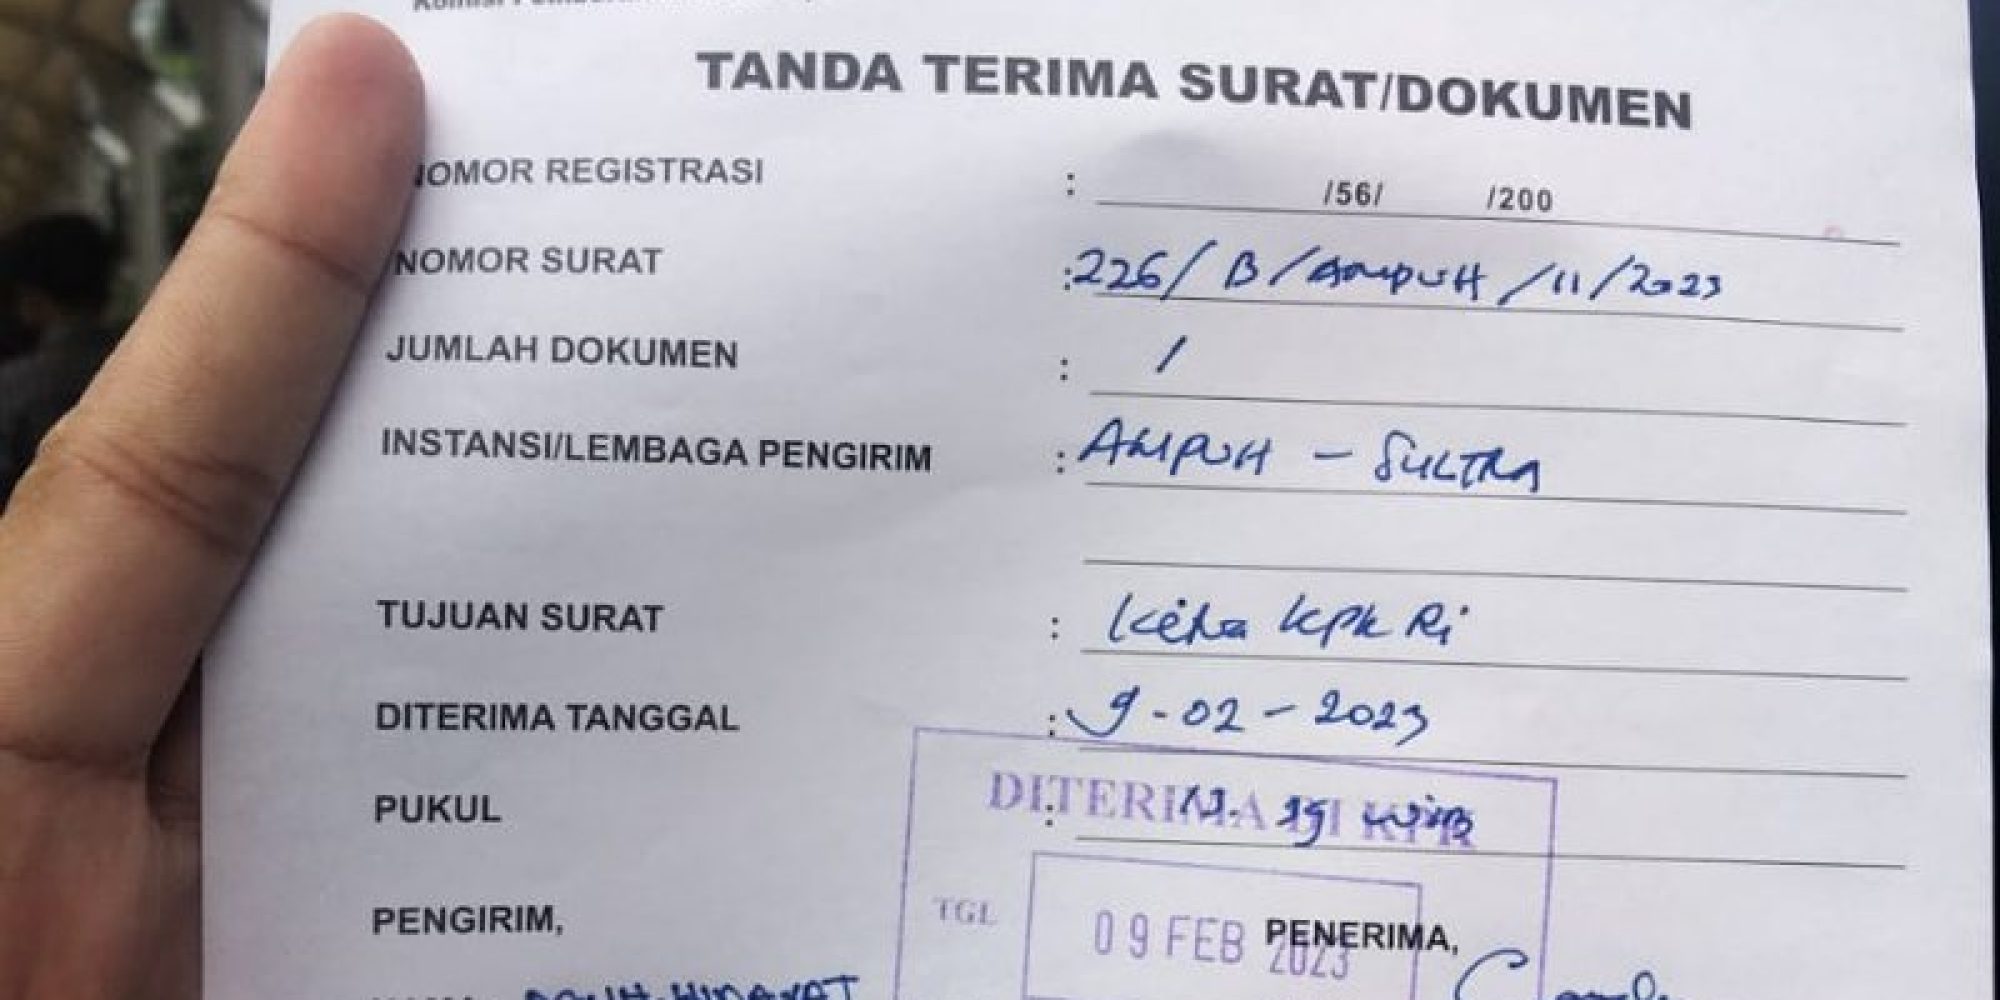 TANDA TERIMA SURAT/DOKUMEN
NOMOR REGISTRASI : /56/ /200
NOMOR SURAT : 226/B/AMPUH/11/2023
JUMLAH DOKUMEN : 1
INSTANSI/LEMBAGA PENGIRIM : AMPUH - SULTRA
TUJUAN SURAT : Ketua KPK Ri
DITERIMA TANGGAL : 9-02-2023
DITERIMA DI KPK
PUKUL : WIB
TGL 09 FEB 2023
PENGIRIM, PENERIMA,
HIDAYAT